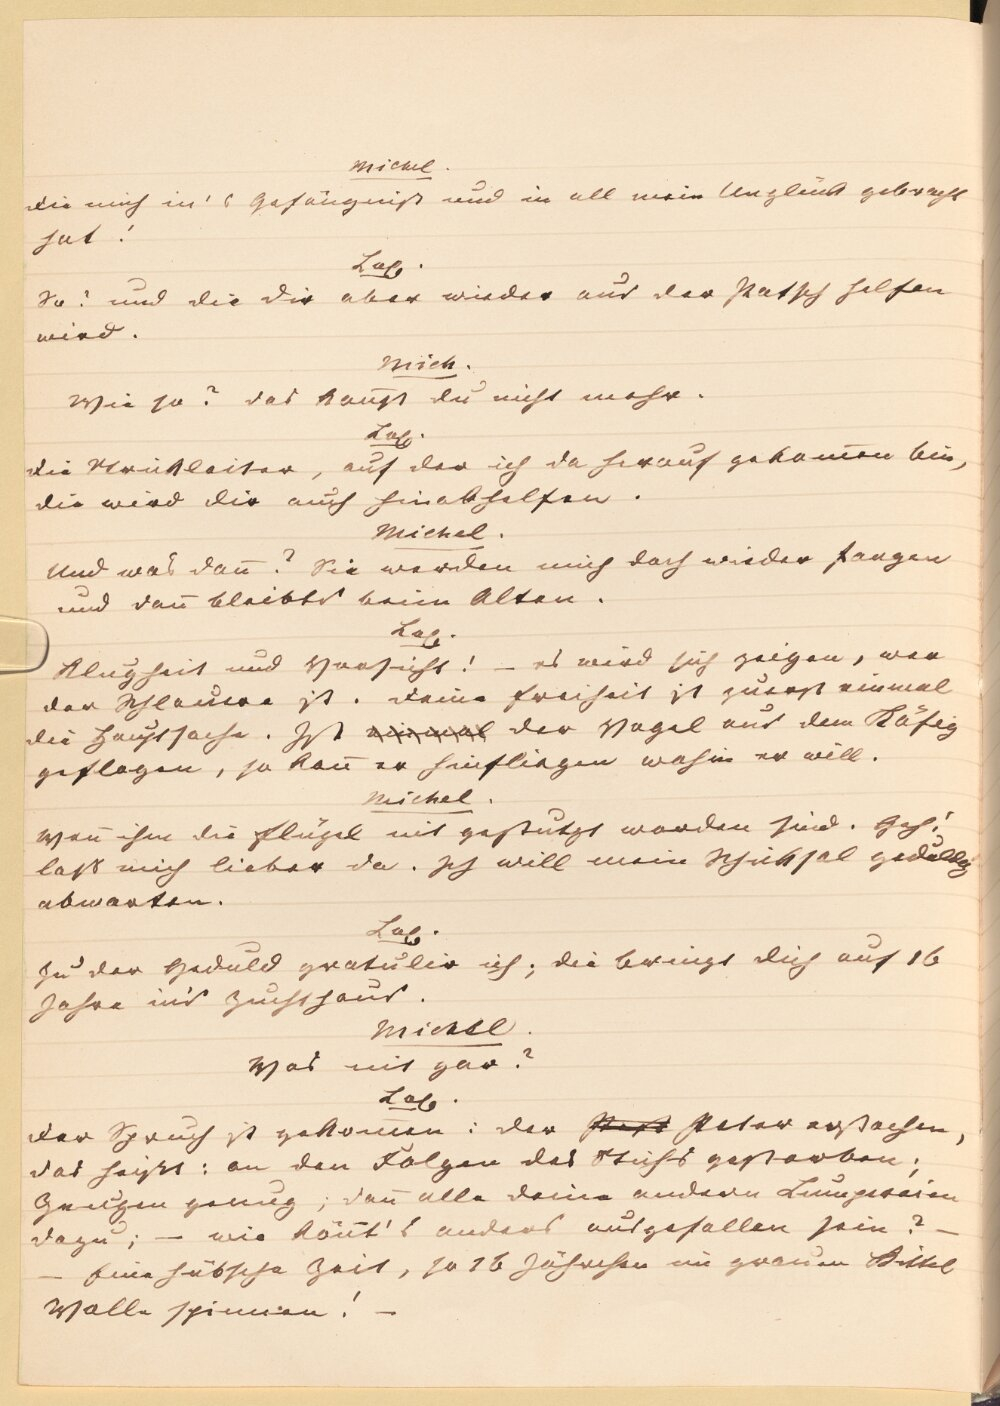 Michel.
Die mich in's Gefängniß und in all mein Unglück gebracht
hat!
Las.
So? und die dir aber wieder aus der Patsch helfen
wird.
Mich.
Wie so? das kanst du nicht mehr.
Las.
Die Strickleiter, auf der ich da herauf gekom̄en bin,
die wird dir auch hinabhelfen.
Michel.
Und was dan̄? Sie werden mich doch wieder fangen
und dan̄ bleibts beim Alten.
Las.
Klugheit und Vorsicht! – es wird sich zeigen, wer
der Schlauere ist. Deine Freiheit ist zuerst einmal
die Hauptsache. Ist einmal der Vogel aus dem Käfig
geflogen, so kan̄ er hinfliegen wohin er will.
Michel.
Wen̄ ihm die Flügel nit gestutzt worden sind. Geh!
laß mich lieber da. Ich will mein Schiksal geduldig
abwarten.
Las.
Zu der Geduld gratulir ich; die bringt dich auf 16
Jahre in's Zuchthaus.
Michel.
Was nit gar?
Las.
Der Spruch ist gekom̄en: der Peter erstochen,
das heißt: an den Folgen des Stichs gestorben;
Zeugen genug; dan̄ alle deine andern Lumpereien
dazu; – wie kön̄t's anders ausgefallen sein? –
– Eine hübsche Zeit, so 16 Jährchen im grauen Kittel
Wolle spinnen! –